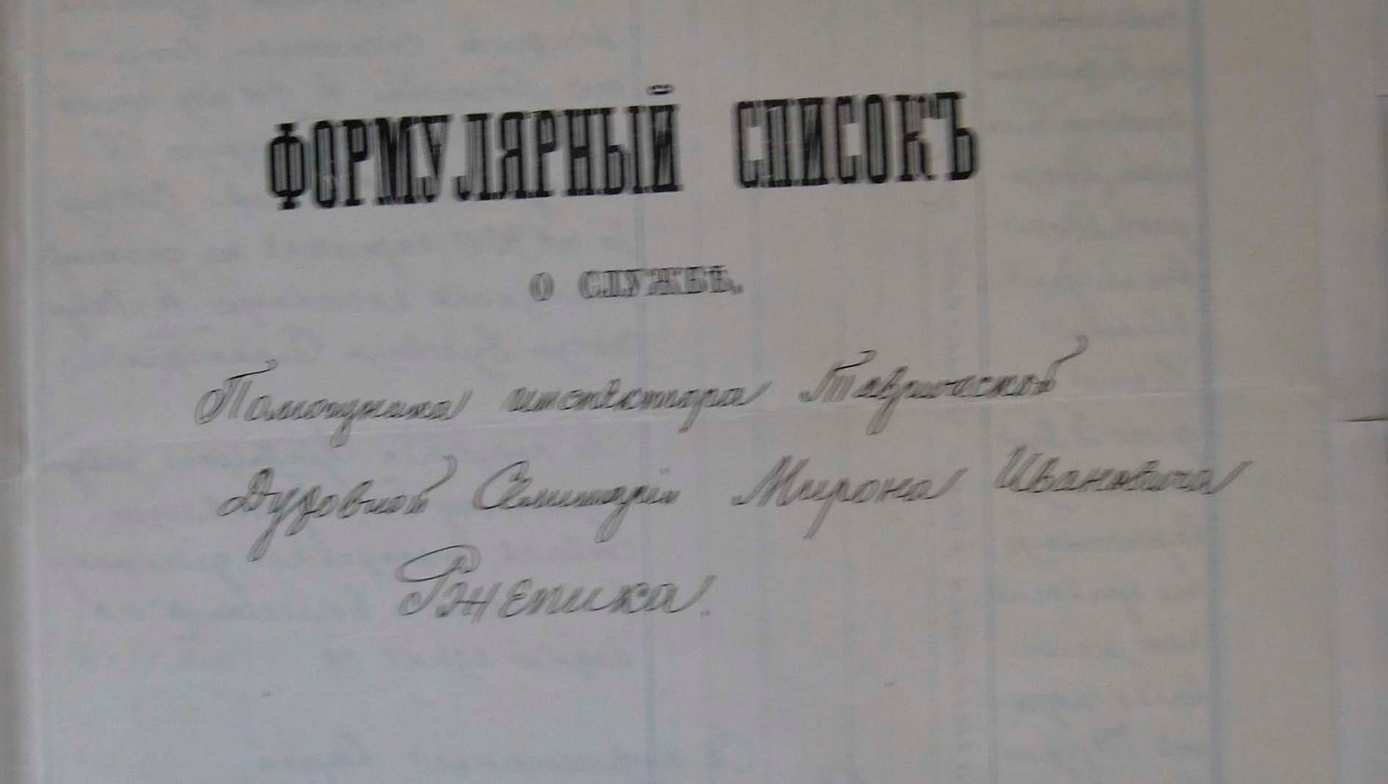 ФОРМУЛЯРНЫЙ СПИСОКЪ
О СЛУЖБѢ.
Помощника инспектора Таврической
Духовной Семинаріи Мирона Ивановича
Ржепика.